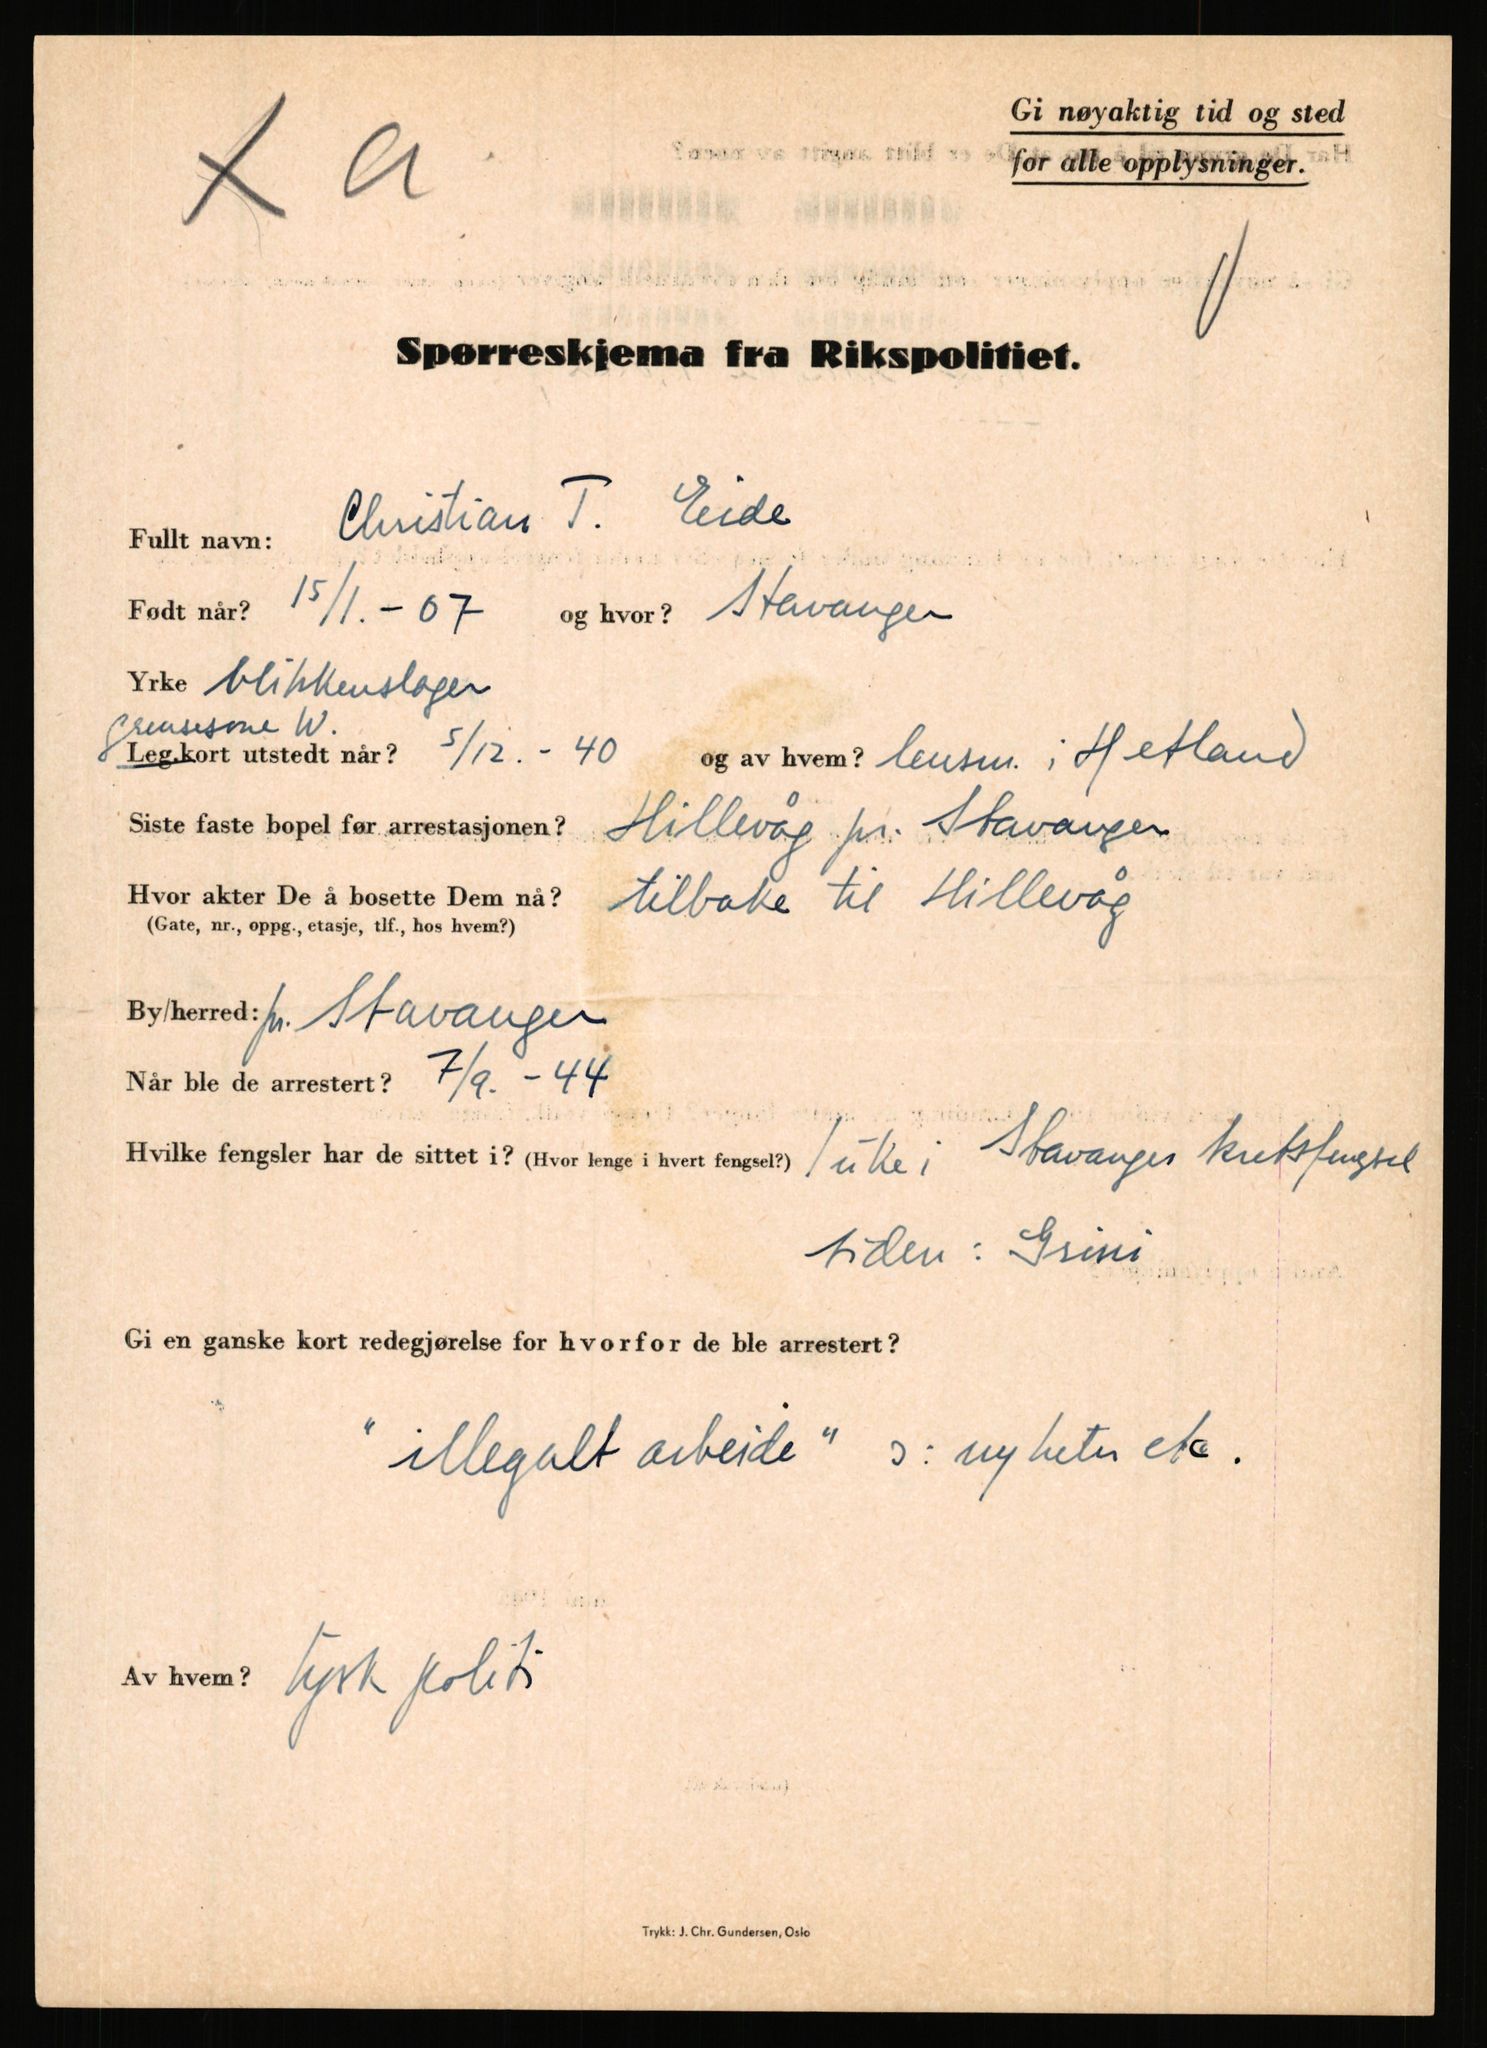 X a
Gi nøyaktig tid og sted
for alle opplysninger.
Spørreskjema fra Rikspolitiet.
Fullt navn: Christian T. Eide
Født når? 15/1. - 07 og hvor? Stavanger
Yrke blikkenslager
grensesone W.
Leg.kort utstedt når? 5/12. - 40 og av hvem? lensm. i Hetland
Siste faste bopel før arrestasjonen? Hillevåg pr. Stavanger
Hvor akter De å bosette Dem nå? tilbake til Hillevåg
(Gate, nr., oppg., etasje, tlf., hos hvem?)
By/herred: pr. Stavanger
Når ble de arrestert? 7/9. - 44
Hvilke fengsler har de sittet i? (Hvor lenge i hvert fengsel?) 1 uke i Stavanger kretsfengsel
siden : Grini
Gi en ganske kort redegjørelse for hvorfor de ble arrestert?
"illegalt arbeide" ɔ: nyheter etc.
Av hvem? tysk politi
Trykk: J. Chr. Gundersen, Oslo